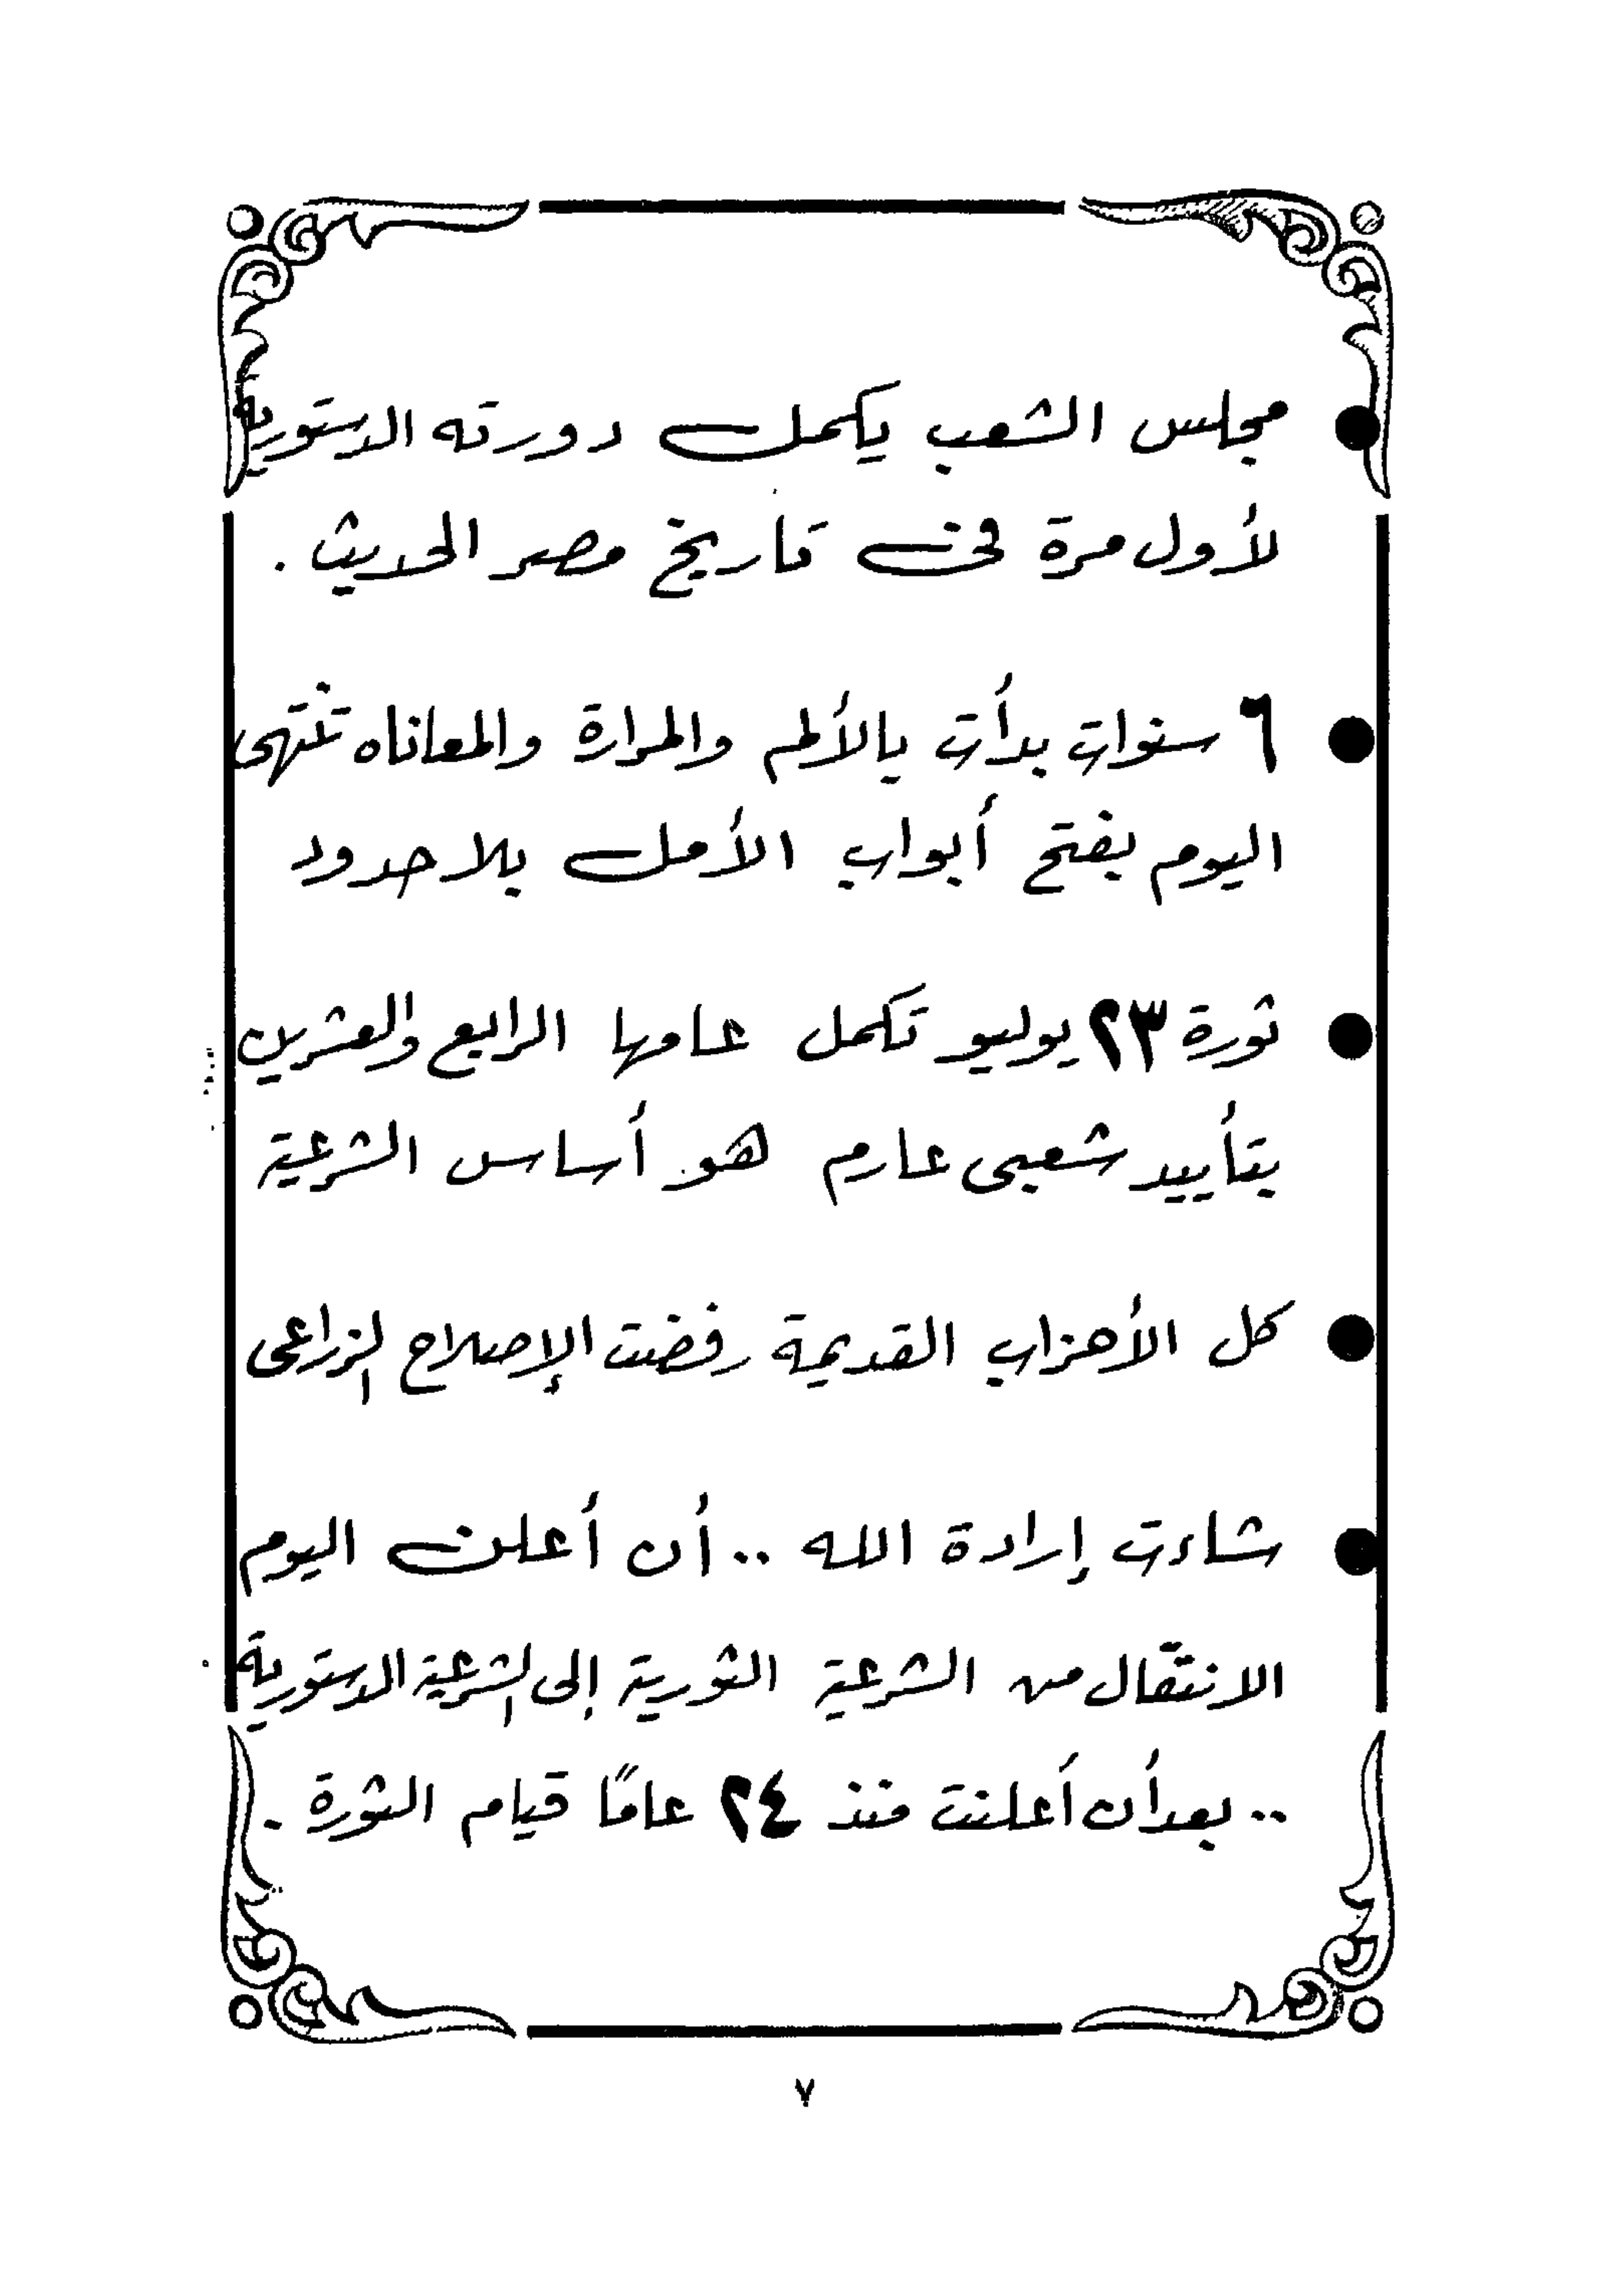 ● مجلس الشعب يكمل دورته الدستورية
لأول مرة فى تاريخ مصر الحديث .
● ٦ سنوات بدأت بالألم والمرارة والمعاناه تنتهى
اليوم بفتح أبواب الأمل بلا حدود
● ثورة ٢٣ يوليو تكمل عامها الرابع والعشرين
بتأييد شعبى عارم هو أساس الشرعية
● كل الأحزاب القديمة رفضت الإصلاح الزراعى
● شاءت إرادة الله .. أن أعلن اليوم
الانتقال من الشرعية الثورية إلى الشرعية الدستورية
.. بعد أن أعلنت منذ ٢٤ عامًا قيام الثورة .
٧